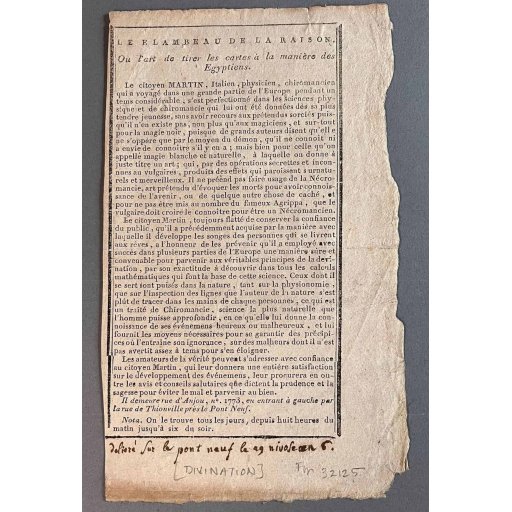 LE FLAMBEAU DE LA RAISON.
Ou l'art de tirer les cartes à la manière des
Egyptiens.
Le citoyen MARTIN, Italien, physicien, chiromancien
qui a voyagé dans une grande partie de l'Europe pendant un
tems considérable, s'est perfectionné dans les sciences phy-
sique et de chiromancie qui lui ont été données dès sa plus
tendre jeunesse, sans avoir recours aux prétendus sorciers puis-
qu'il n'en existe pas, non plus qu'aux magiciens, et sur-tout
pour la magie noir, puisque de grands auteurs disent qu'elle
ne s'oppère que par le moyen du démon, qu'il ne connoit ni
a envie de connoître s'il y en a; mais bien pour celle qu'on
appelle magie blanche et naturelle, à laquelle on donne à
juste titre un art; qui, par des opérations secrettes et incon-
nues au vulgaires, produits des effets qui paroissent surnatu-
rels et merveilleux. Il ne prétend pas faire usage de la Nécro-
mancie, art prétendu d'évoquer les morts pour avoir connois-
sance de l'avenir, ou de quelque autre chose de caché, et
pour ne pas être mis au nombre du fameux Agrippa, que le
vulgaire doit croire le connoître pour être un Nécromancien.
Le citoyen Martin, toujours flatté de conserver la confiance
du public, qu'il a précédemment acquise par la manière avec
laquelle il développe les songes des personnes qui se livrent
aux rêves, a l'honneur de les prévenir qu'il a employé avec
succès dans plusieurs parties de l'Europe une manière sûre et
convenable pour parvenir aux véritables principes de la devi-
nation, par son exactitude à découvrir dans tous les calculs
mathématiques qui font la base de cette science. Ceux dont il
se sert sont puisés dans la nature, tant sur la physionomie,
que sur l'inspection des lignes que l'auteur de la nature s'est
plût de tracer dans les mains de chaque personnes, ce qui est
un traité de Chiromancie, science la plus naturelle que
l'homme puisse approfondir, en ce qu'elle lui donne la con-
noissance de ses événemens heureux ou malheureux, et lui
fournit les moyens nécessaires pour se garantir des précipi-
ces où l'entraîne son ignorance, sur des malheurs dont il n'est
pas avertit assez à tems pour s'en éloigner.
Les amateurs de la vérité peuvent s'adresser avec confiance
au citoyen Martin, qui leur donnera une entière satisfaction
sur le développement des événemens, leur procurera en ou-
tre les avis et conseils salutaires que dictent la prudence et la
sagesse pour éviter le mal et parvenir au bien.
Il demeure rue d'Anjou, n°. 1773, en entrant à gauche par
la rue de Thionville près le Pont Neuf.
Nota. On le trouve tous les jours, depuis huit heures du
matin jusqu'à six du soir.
sur le pont neuf le 29 nivose an 6.
[DIVINATION]
32125